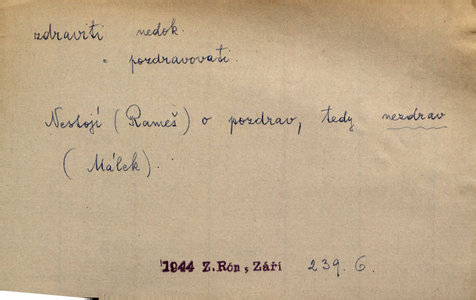 zdraviti nedok.
= pozdravovati.
Nestojí (Rameš) o pozdrav, tedy nezdrav
(Málek).
1944 Z.Rón, Září 239.6.